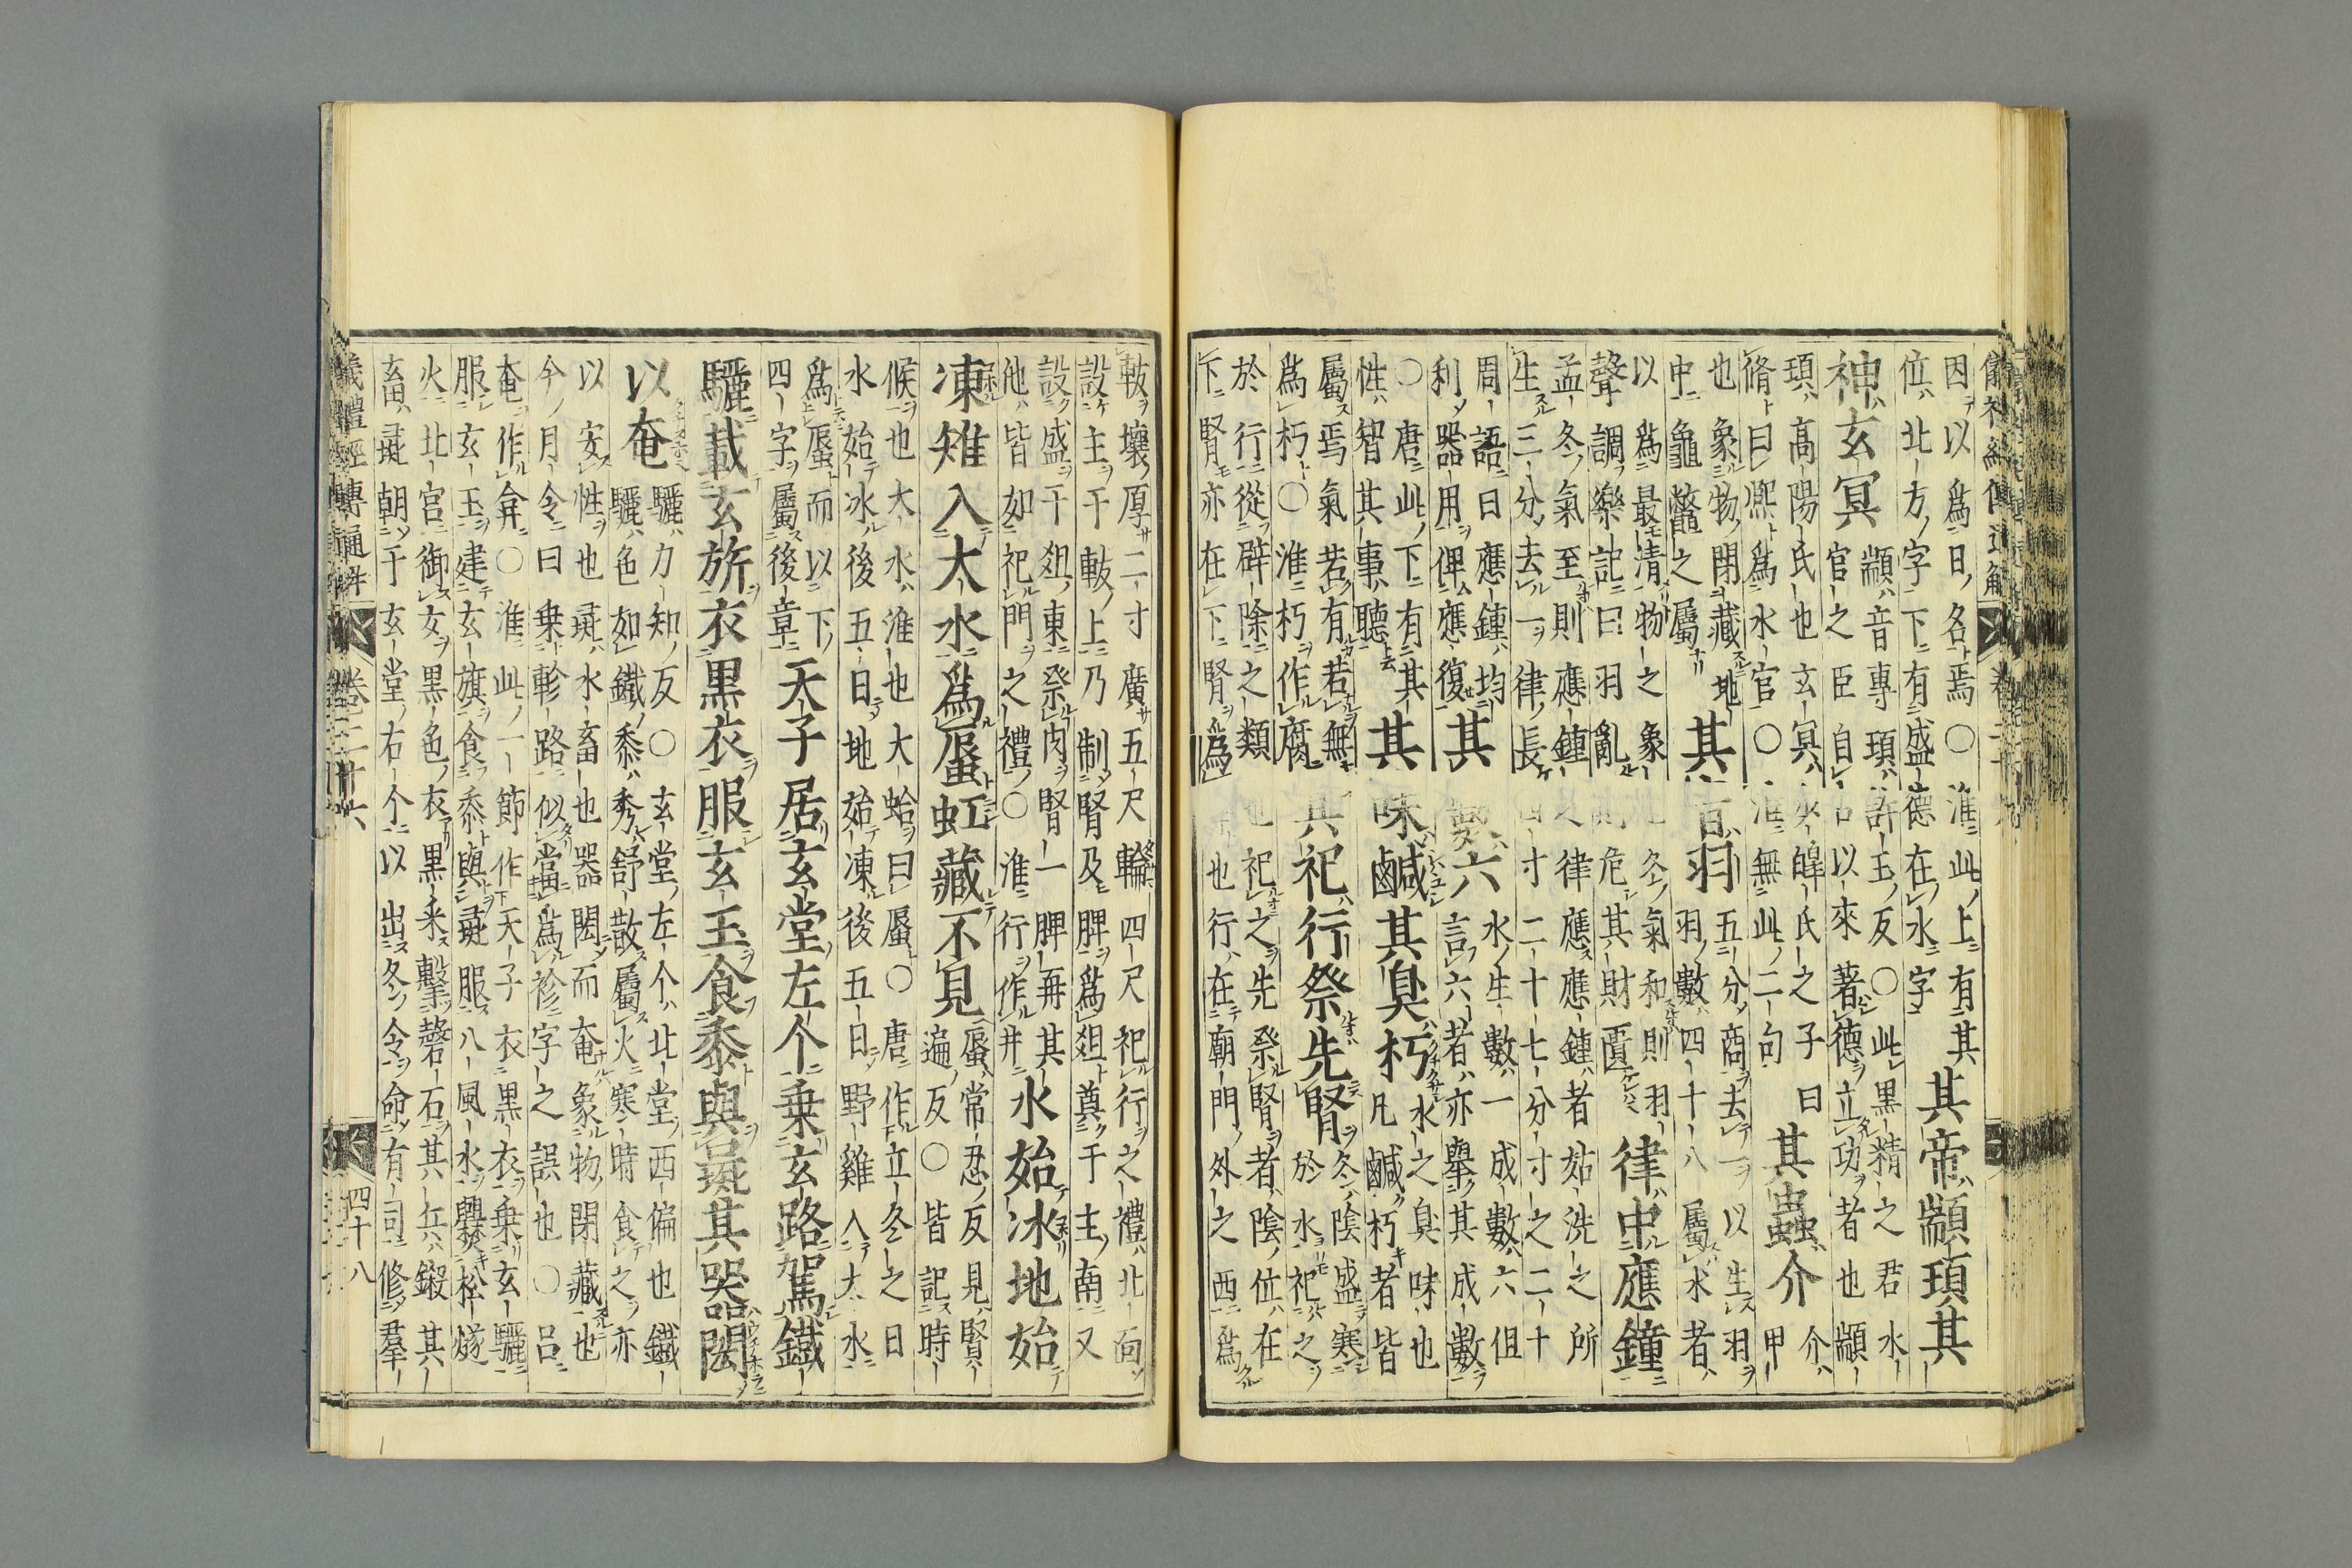 因以為日名焉○淮此上有其
位北方字下有盛德在水字
其帝顓頊其
神玄冥
顓音專頊許玉反○此黒精之君水
官之臣自古以來著德立功者也顓
頊高陽氏也玄冥少皡氏之子曰
脩曰熈為水官○淮無此二句
其蟲介
介
甲
也象物閉藏地
中龜鼈之屬
其音羽
五分商去一以生羽
羽數四十八屬水者
以為最清物之象也冬氣和則羽
聲調樂記曰羽亂則危其財匱
律中應鐘
孟冬氣至則應鍾之律應應鍾者姑洗之所
生三分去一律長四寸二十七分寸之二十
周語曰應鍾均
利器用俾應復
其數六
水生數一成數六但
言六者亦擧其成數
○唐此下有其
性智其事聽
其味鹹其臭朽
水之臭味也
凡鹹朽者皆
屬焉氣若有若無
為朽○淮朽作腐
其祀行祭先腎
冬陰盛寒
於水祀之
於行從辟除之類也祀之先祭腎者陰位在
下腎亦在下腎為也行在廟門外之西為
軷壤厚二寸廣五尺輪四尺祀行之禮北面
設主于軷上乃制腎及脾為俎奠于主南又
設盛于俎東祭肉腎一脾再其
他皆如祀門之禮○淮行作井
水始冰地始
凍雉入大水為蜃虹藏不見
蜃常忍反見賢
遍反○皆記時
候也大水淮也大蛤曰蜃○唐作立冬之日
水始冰後五日地始凍後五日野雞入大水
為蜃而以下
四字屬後章
天子居玄堂左个乗玄路駕鐵
驪載玄旂衣黒衣服玄玉食黍與彘其器閎
以奄
驪力知反○玄堂左个北堂西偏也鐵
驪色如鐵黍秀舒散屬火寒時食之亦
以安性也彘水畜也器閎而奄象物閉藏也
今月令曰乗軫路似當為袗字之誤也○吕
奄作弇○淮此一節作天子衣黒衣乗玄驪
服玄玉建玄旗食黍與彘服八風水爨松燧
火北宮御女黒色衣黒采擊磬石其兵鍛其
畜彘朝于玄堂右个以出冬令命有司修羣
儀禮經傳通解　卷二十六　四十八